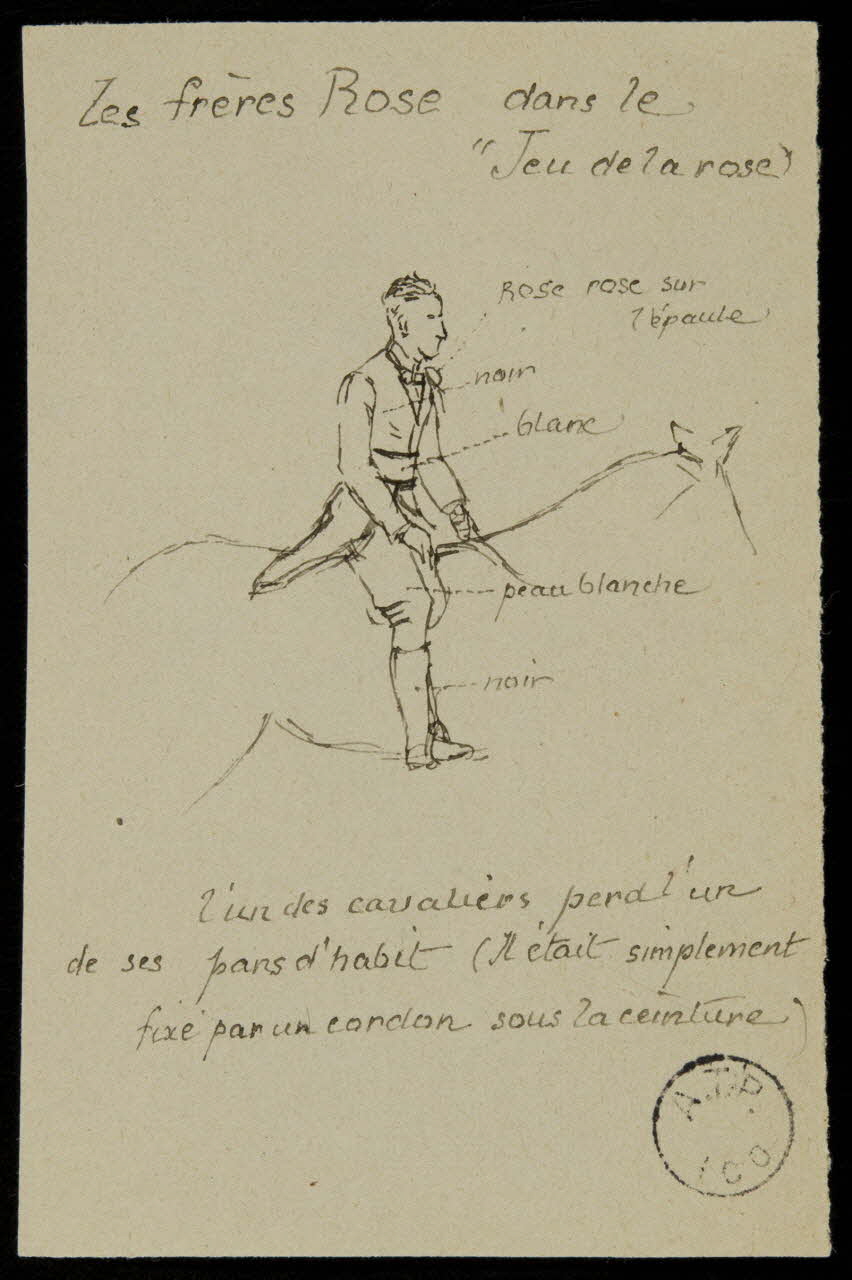 Les frères Rose dans le
"Jeu de la rose)
Rose rose sur
l'épaule
noir
blanc
peau blanche
noir
l'un des cavaliers perd l'un
de ses pans d'habit (Il était simplement
fixé par un cordon sous la ceinture)
A.T.P.
ICO